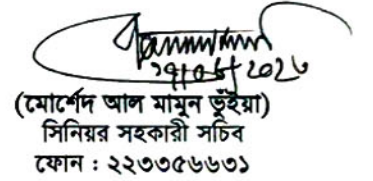 (মোর্শেদ আল মামুন ভুঁইয়া)
সিনিয়র সহকারী সচিব
ফোন : ২২৩৩৫৬৬৩১